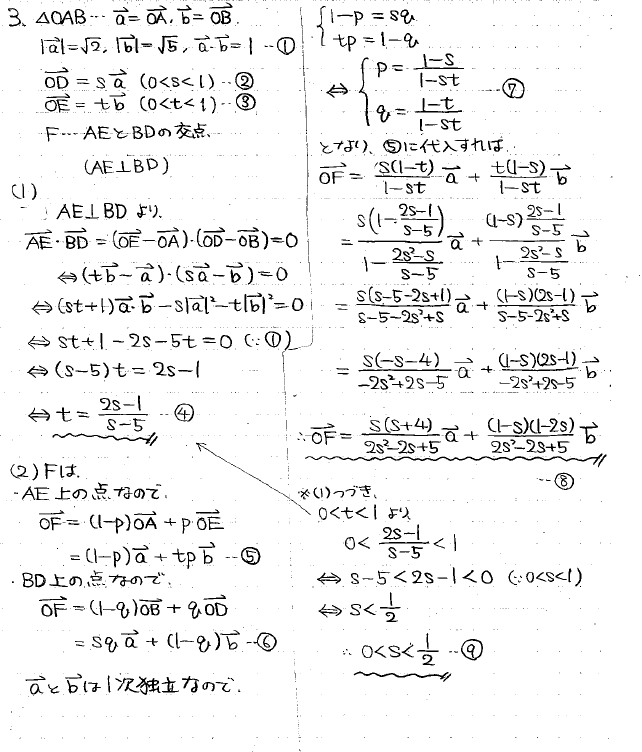 3. △OAB… a⃗=OA⃗, b⃗=OB⃗.
|a⃗|=√2, |b⃗|=√5, a⃗·b⃗=1 …①
OD⃗ = s a⃗ (0<s<1)…②
OE⃗ = t b⃗ (0<t<1)…③
F…AEとBDの交点.
(AE⊥BD)
(1)
AE⊥BD より,
AE⃗·BD⃗=(OE⃗−OA⃗)·(OD⃗−OB⃗)=0
⇔(tb⃗−a⃗)·(sa⃗−b⃗)=0
⇔(st+1)a⃗·b⃗−s|a⃗|²−t|b⃗|²=0
⇔ st+1−2s−5t=0 (∵①)
⇔(s−5)t=2s−1
⇔ t = (2s−1)/(s−5) …④
(2) Fは,
・AE上の点なので,
OF⃗ = (1−p)OA⃗+pOE⃗
=(1−p)a⃗+tpb⃗ …⑤
・BD上の点なので,
OF⃗ = (1−q)OB⃗+qOD⃗
= sqa⃗+(1−q)b⃗ …⑥
a⃗とb⃗は1次独立なので,
{1−p=sq
tp=1−q
⇔ {p = (1−s)/(1−st)
q = (1−t)/(1−st) …⑦
となり, ⑤に代入すれば,
OF⃗ = s(1−t)/(1−st) a⃗ + t(1−s)/(1−st) b⃗
= s(1−(2s−1)/(s−5))/(1−(2s²−s)/(s−5)) a⃗ + (1−s)(2s−1)/(s−5)/(1−(2s²−s)/(s−5)) b⃗
= s(s−5−2s+1)/(s−5−2s²+s) a⃗ + (1−s)(2s−1)/(s−5−2s²+s) b⃗
= s(−s−4)/(−2s²+2s−5) a⃗ + (1−s)(2s−1)/(−2s²+2s−5) b⃗
∴OF⃗ = s(s+4)/(2s²−2s+5) a⃗ + (1−s)(1−2s)/(2s²−2s+5) b⃗
…⑧
※(1)つづき,
0<t<1 より,
0< (2s−1)/(s−5) <1
⇔ s−5<2s−1<0 (∵0<s<1)
⇔ s<1/2
∴ 0<s<1/2 …⑨